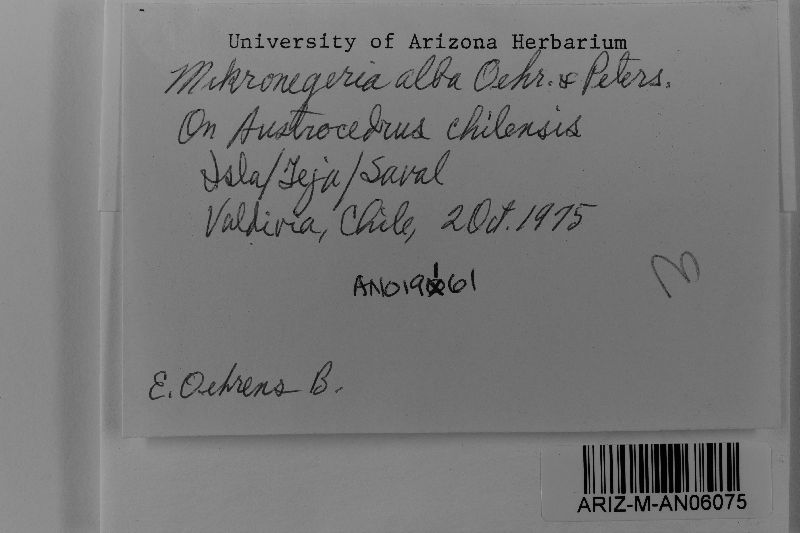 University of Arizona Herbarium
Mikronegeria alba Oehr. & Peters.
On Austrocedrus chilensis
Isla/Teja/Saval
Valdivia, Chile, 2 Oct. 1975
AN019161
E. Oehrens B.
ARIZ-M-AN06075